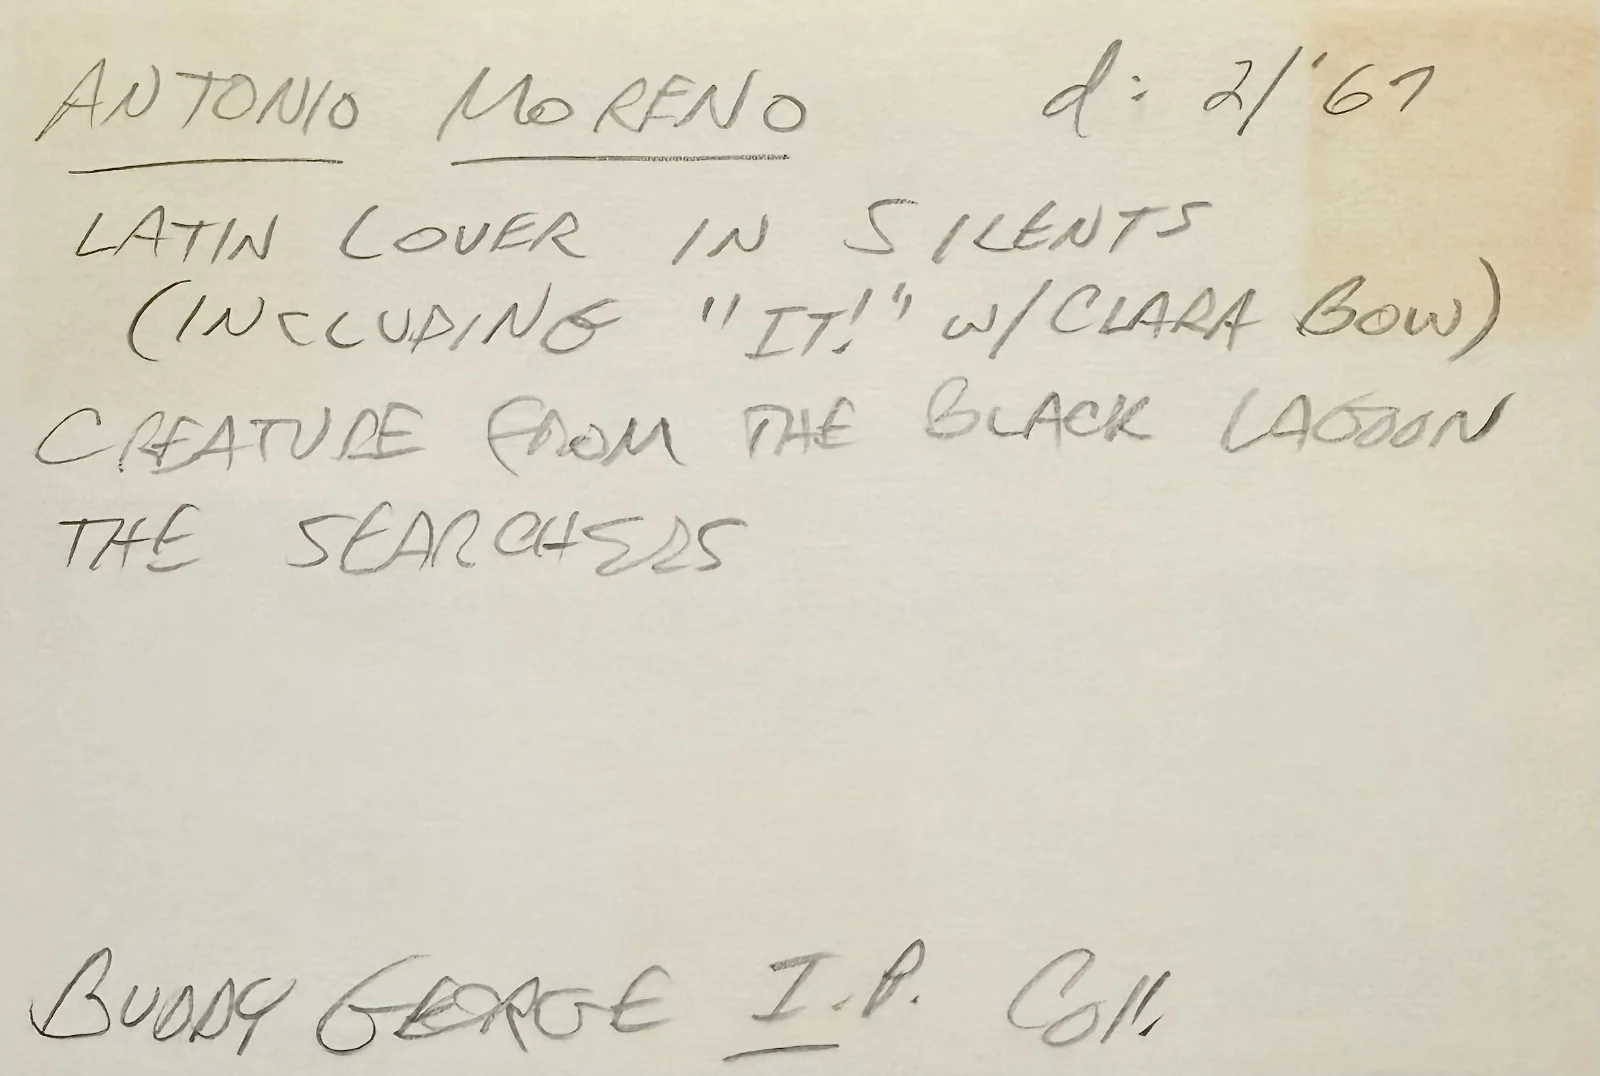 ANTONIO MORENO d: 2/'67
LATIN LOVER IN SILENTS
(INCLUDING "IT!" w/CLARA BOW)
CREATURE FROM THE BLACK LAGOON
THE SEARCHERS
BUDDY GEORGE I.P. Coll.